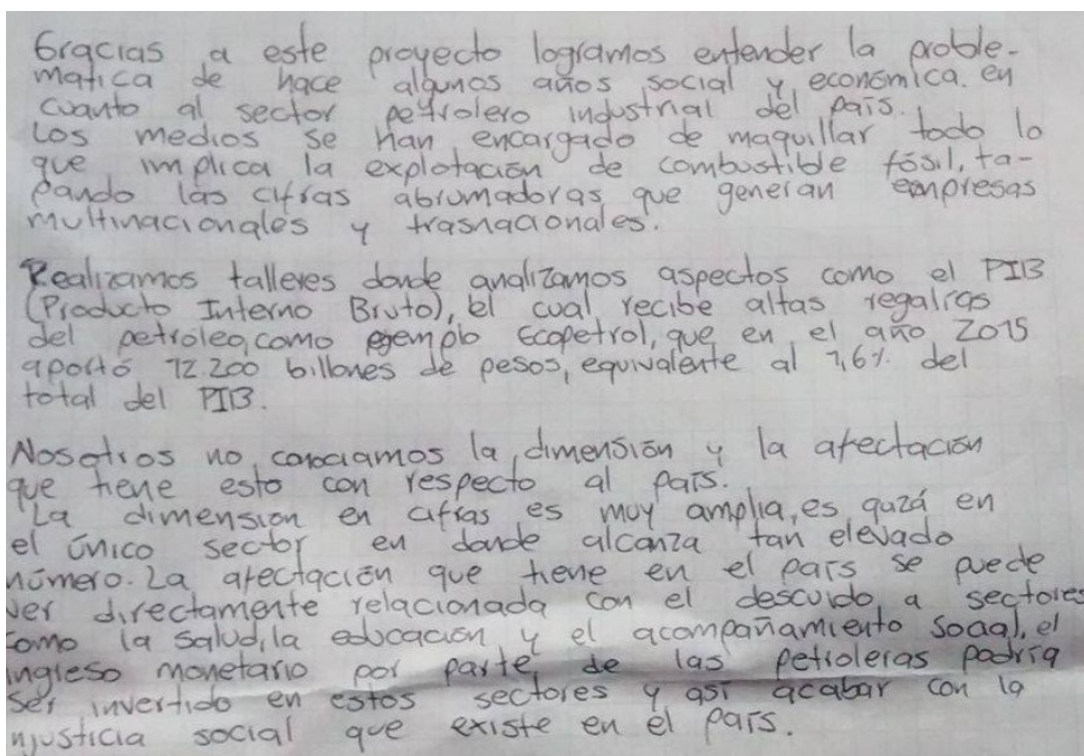 Gracias a este proyecto logramos entender la proble-
matica de hace algunos años social y económica. en
cuanto al sector petrolero industrial del país.
Los medios se han encargado de maquillar todo lo
que implica la explotación de combustible fósil, ta-
pando las cifras abrumadoras que generan empresas
multinacionales y trasnacionales.
Realizamos talleres donde analizamos aspectos como el PIB
(Producto Interno Bruto), el cual recibe altas regalías
del petroleo, como ejemplo Ecopetrol, que en el año 2015
aportó 12.200 billones de pesos, equivalente al 1,6% del
total del PIB.
Nosotros no conociamos la dimensión y la afectación
que tiene esto con respecto al país.
La dimension en cifras es muy amplia, es quizá en
el único sector en donde alcanza tan elevado
número. La afectación que tiene en el país se puede
ver directamente relacionada con el descuido a sectores
como la salud, la educación y el acompañamiento social, el
ingreso monetario por parte de las petroleras podría
ser invertido en estos sectores y así acabar con la
injusticia social que existe en el país.